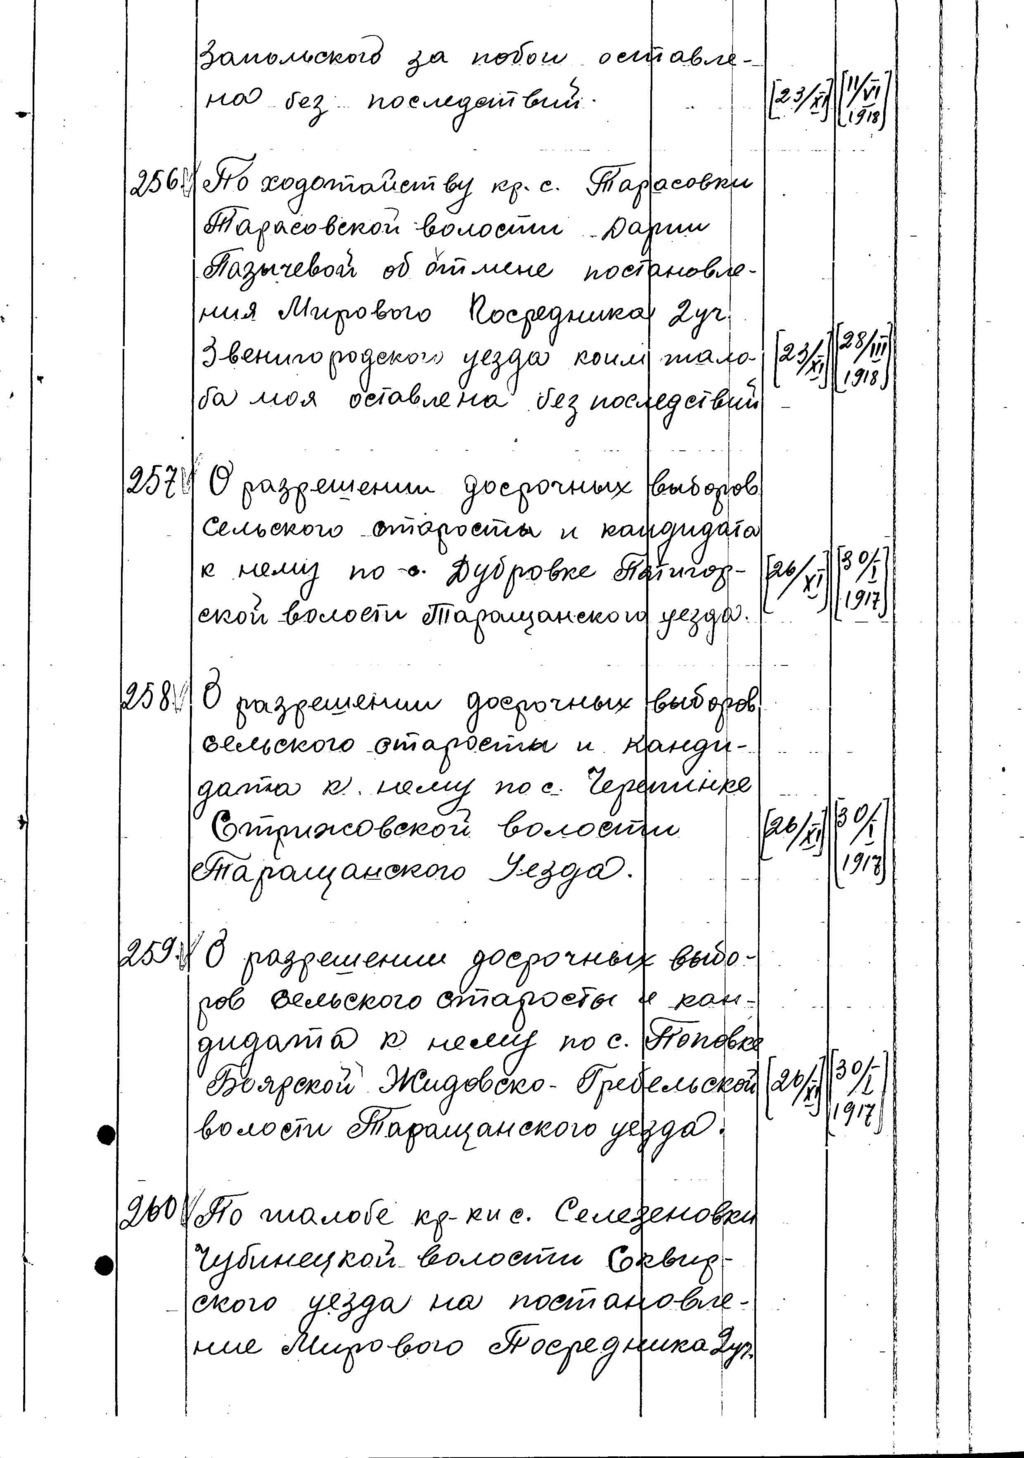 Запольского за побои оставле-
на без последствий. [23/XI] [11/VI 1918]
256. По ходотайству кр. с. Тарасовки
Тарасовской волости Дарии
Пазычевой об отмене постановле-
ния Мирового Посредника 2 уч.
Звенигородского уезда коим жало- [23/XI] [28/III 1918]
ба моя оставлена без последствий
257 О разрешении досрочных выборов
сельского старосты и кандидата
к нему по с. Дубровке Пятигор- [26/XI] [30/I 1917]
ской волости Таращанского уезда.
258. О разрешении досрочных выборов
сельского старосты и канди-
дата к нему по с. Черепинке
Стрижовской волости [26/XI] [30/I 1917]
Таращанского Уезда.
259. О разрешении досрочных выбо-
ров сельского старосты и кан-
дидата к нему по с. Поповке
Боярской Жидовско-Гребельской [26/XI] [30/I 1917]
волости Таращанского уезда.
260 По жалобе кр-ки с. Селезеновки
Чубинецкой волости Сквир-
ского уезда на постановле-
ние Мирового Посредника 2 уч.